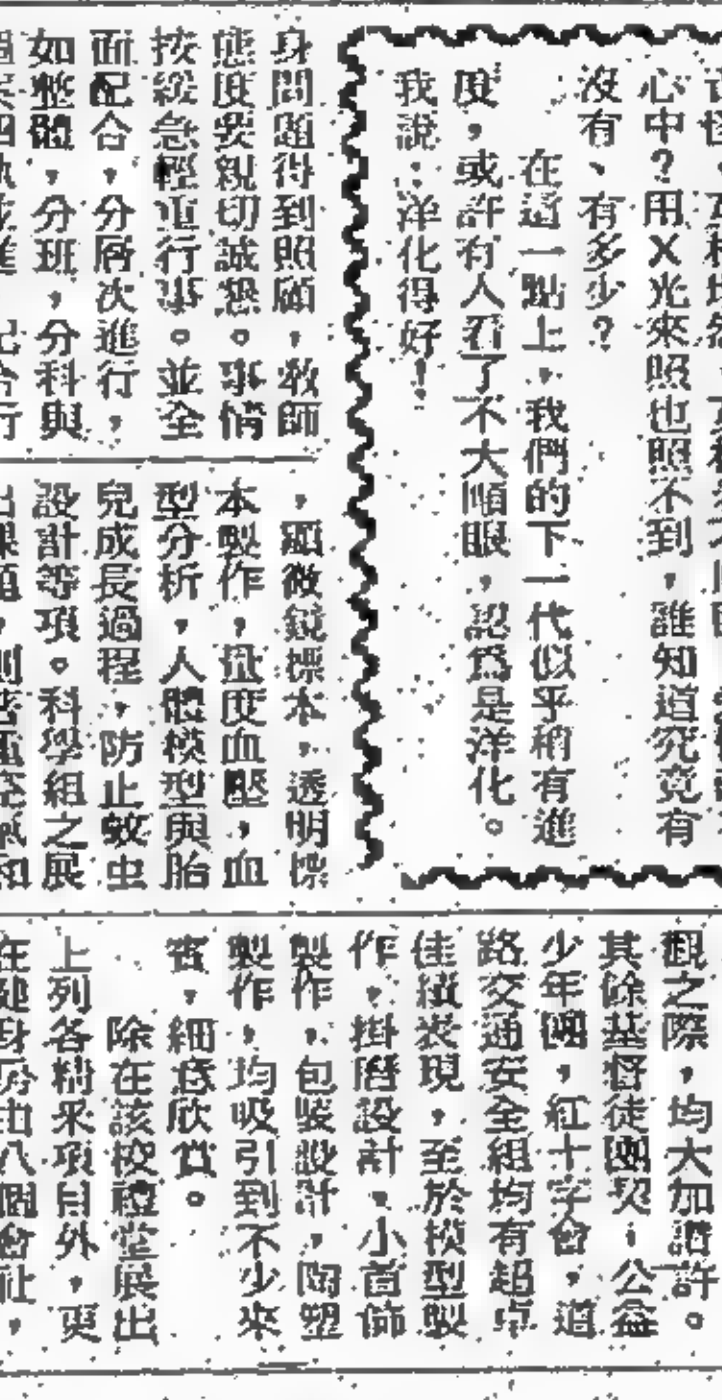 心中？用X光來照也照不到，誰知道究竟有
沒有、有多少？
在這一點上，我們的下一代似乎稍有進
度，或許有人看了不大順眼，認爲是洋化。
我說：洋化得好！
身問題得到照顧，教師
態度要親切誠懇。事情
按緩急輕重行事。並全
面配合，分層次進行，
如整體，分班，分科與
，顯微鏡標本，透明標
本製作，量度血壓，血
型分析，人體模型與胎
兒成長過程，防止蚊虫
設計等項。科學組之展
觀之際，均大加讚許。
其餘基督徒團契，公益
少年團，紅十字會，道
路交通安全組均有超卓
佳績表現，至於模型製
作，掛曆設計，小首飾
製作，包裝設計，陶塑
製作，均吸引到不少來
賓，細意欣賞。
除在該校禮堂展出
上列各精采項目外，更
在健身房由八個會社，